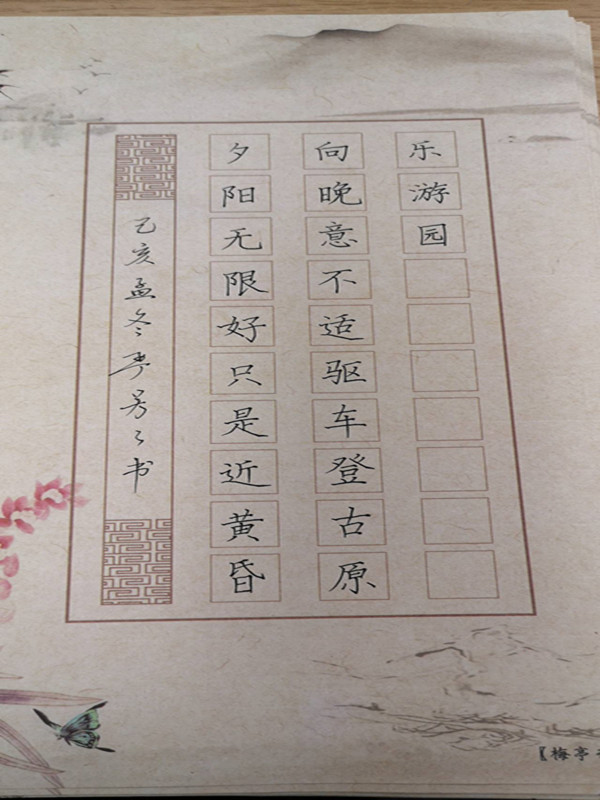 乐游园
向晚意不适驱车登古原
夕阳无限好只是近黄昏
乙亥孟冬
书
梅亭